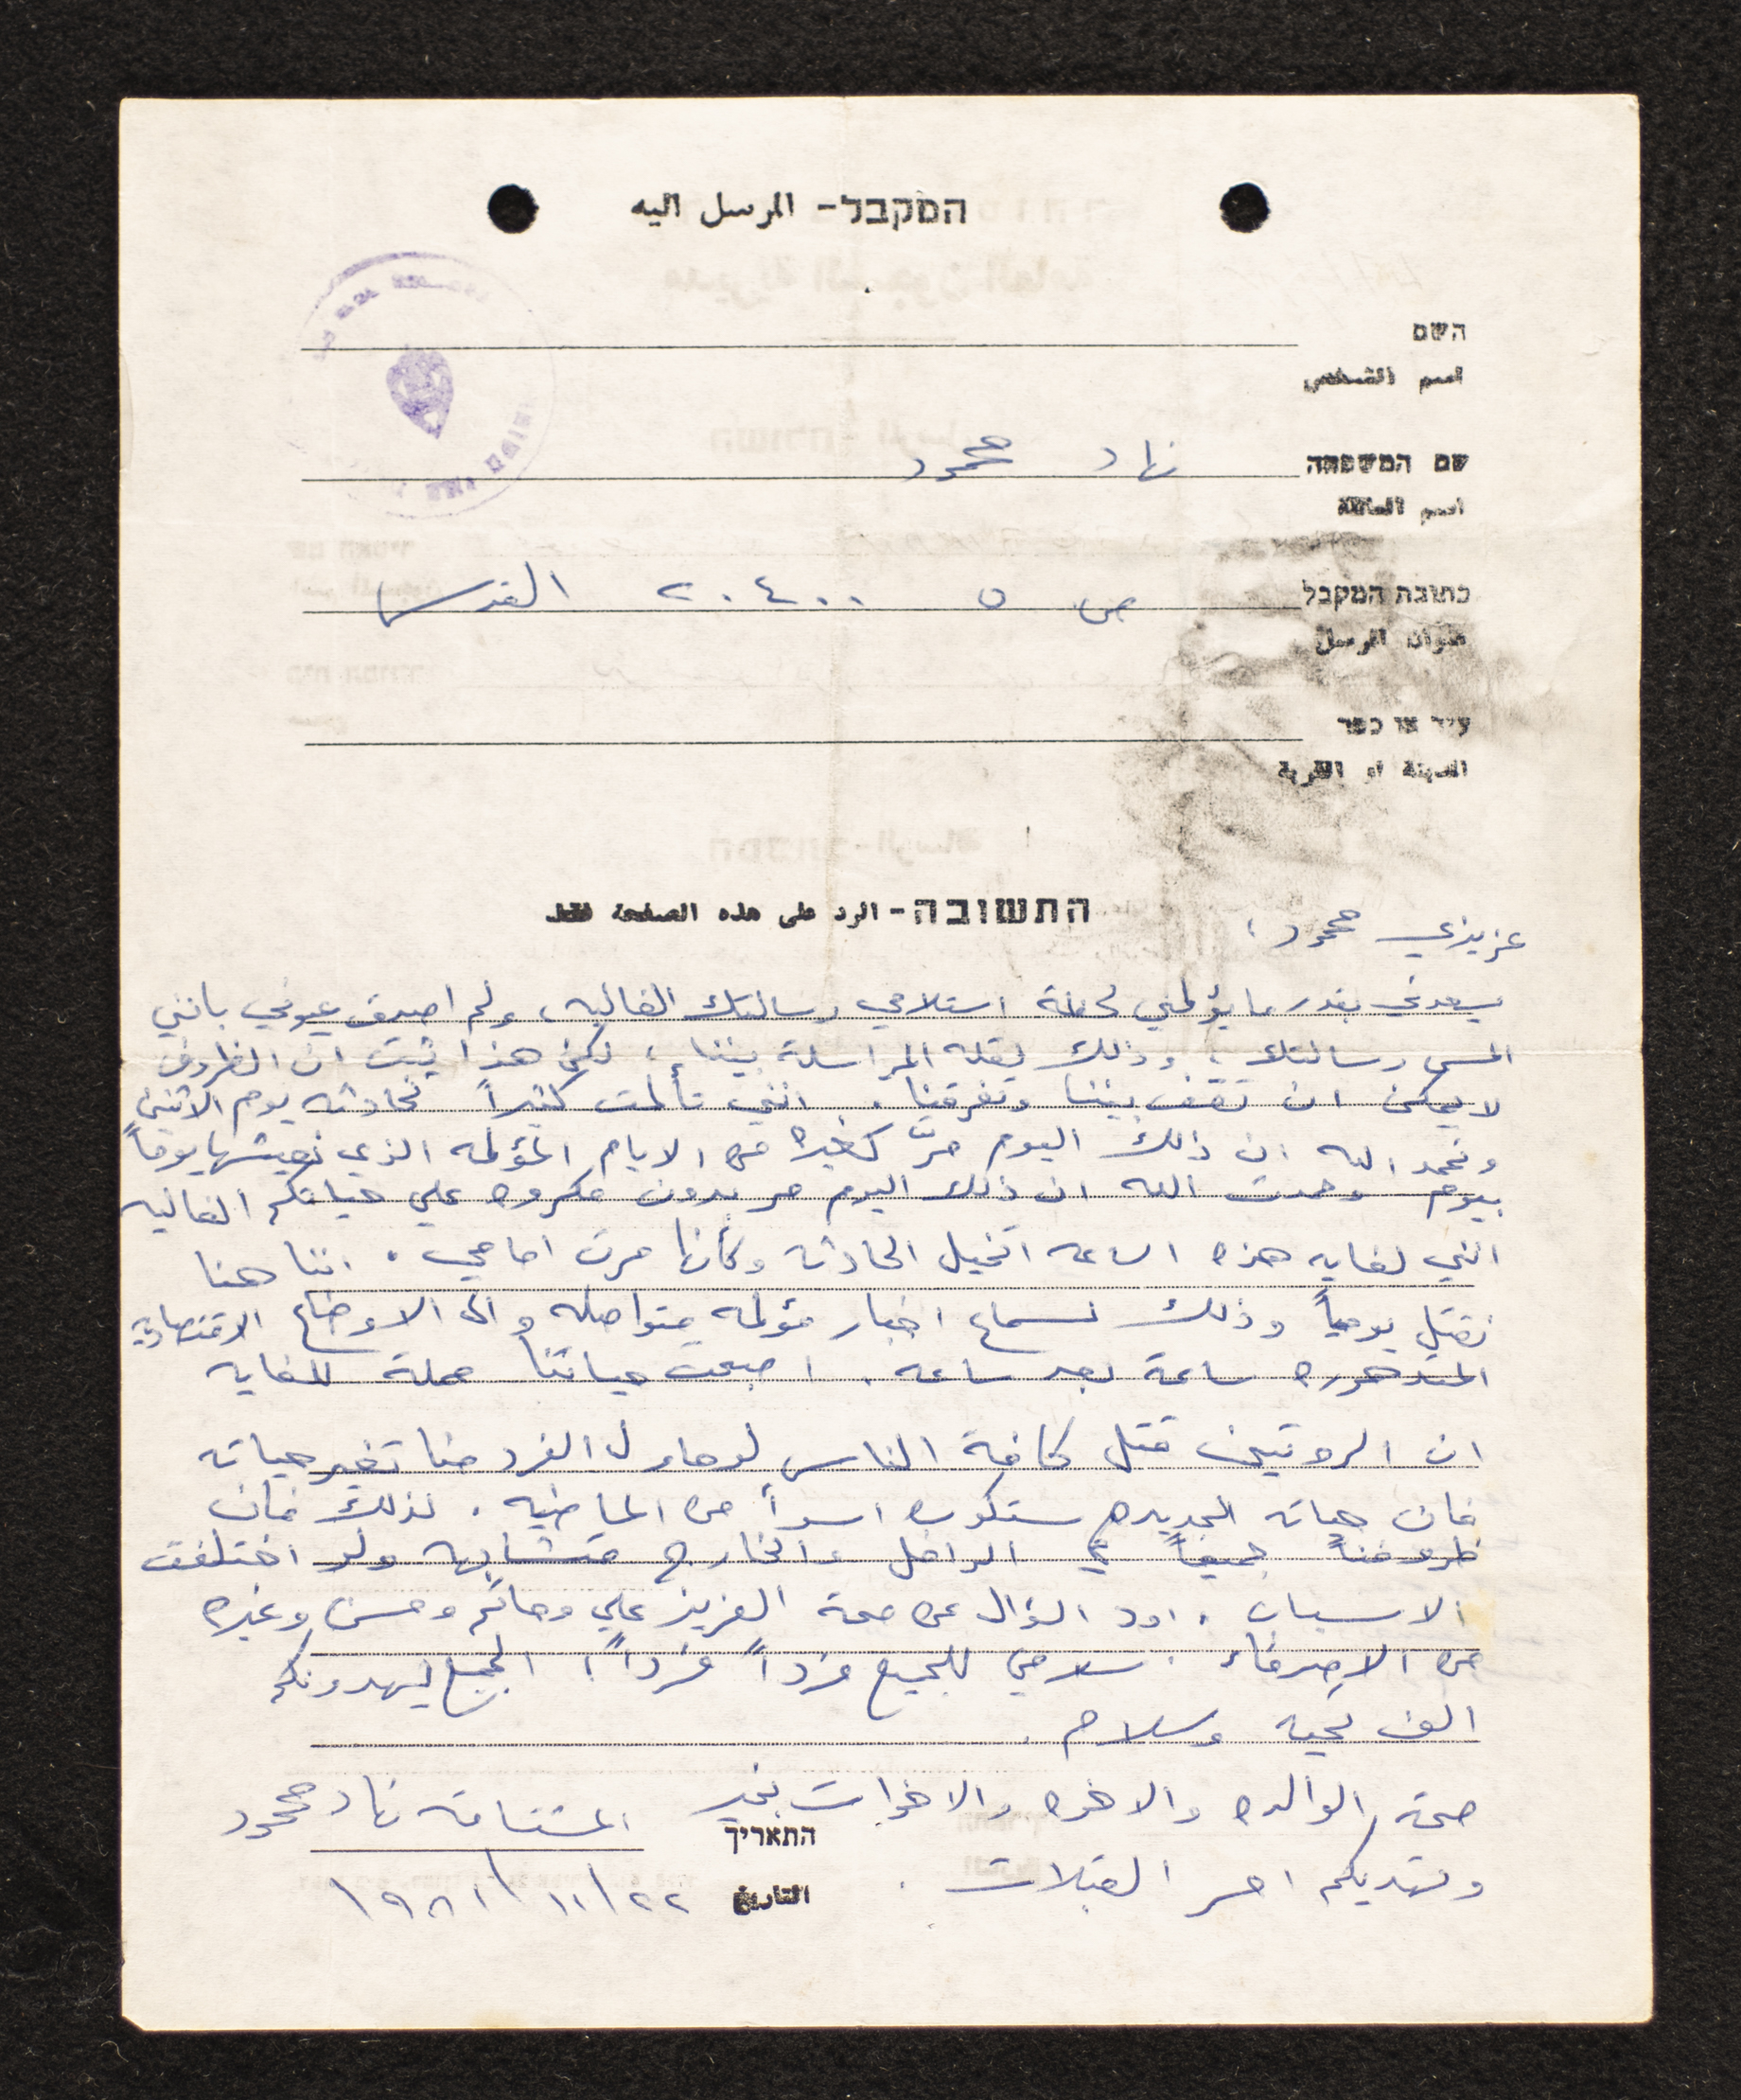 המקבל - المرسل اليه
השם
اسم الشخص
שם המשפחה نهاد محمود
اسم العائلة
כתובת המקבל ص ٥ ٢٠٤٠٠ القدس
عنوان المرسل
עיר או כפר
المدينة او القرية
התשובה - الرد على هذه الصفحة فقط
عزيزي محمود ،
يسعدني بقدر ما يؤلمني لحظة استلامي رسالتك الغاليه ، ولم اصدق عيوني بانني
المس رسالتك ، وذلك لقله المراسلة بيننا ، لكن هذا يثبت ان الظروف
لا يمكن ان تقف بيننا وتفرقنا . انني تألمت كثيراً لحادثه يوم الاثنين
ونحمد الله ان ذلك اليوم مرّ كغيره من الايام المؤلمه الذي نعيشها يوماً
بيوم وحمدت الله ان ذلك اليوم مر بدون مكروه على حياتكم الغاليه
انني لغايه هذه الساعه اتخيل الحادثه وكأنها مرت امامي . اننا هنا
نقتل يومياً وذلك لسماع اخبار مؤلمه متواصله والى الاوضاع الاقتصاديه
المتدهوره ساعة بعد ساعه . اصبحت حياتنا مملة للغايه
ان الروتين قتل كافة الناس لو حاول الفرد منا تغير حياته
فان حياته الجديده ستكون اسوأ من الماضيه . لذلك فان
ظروفناً جميعاً في الداخل والخارج متشابهه ولو اختلفت
الاسباب . اود السؤال عن صحة العزيز علي وحاتم وحسن وغيره
من الاصدقاء . سلامي للجميع فرداً فرداً ، الجميع ليهدونكم
الف تحيه وسلام .
صحة الوالده والاخوه والاخوات بخير المشتاقه نهاد محمود
התאריך
ونهديكم احر القبلات .
التاريخ ٢٢/١١/١٩٨١